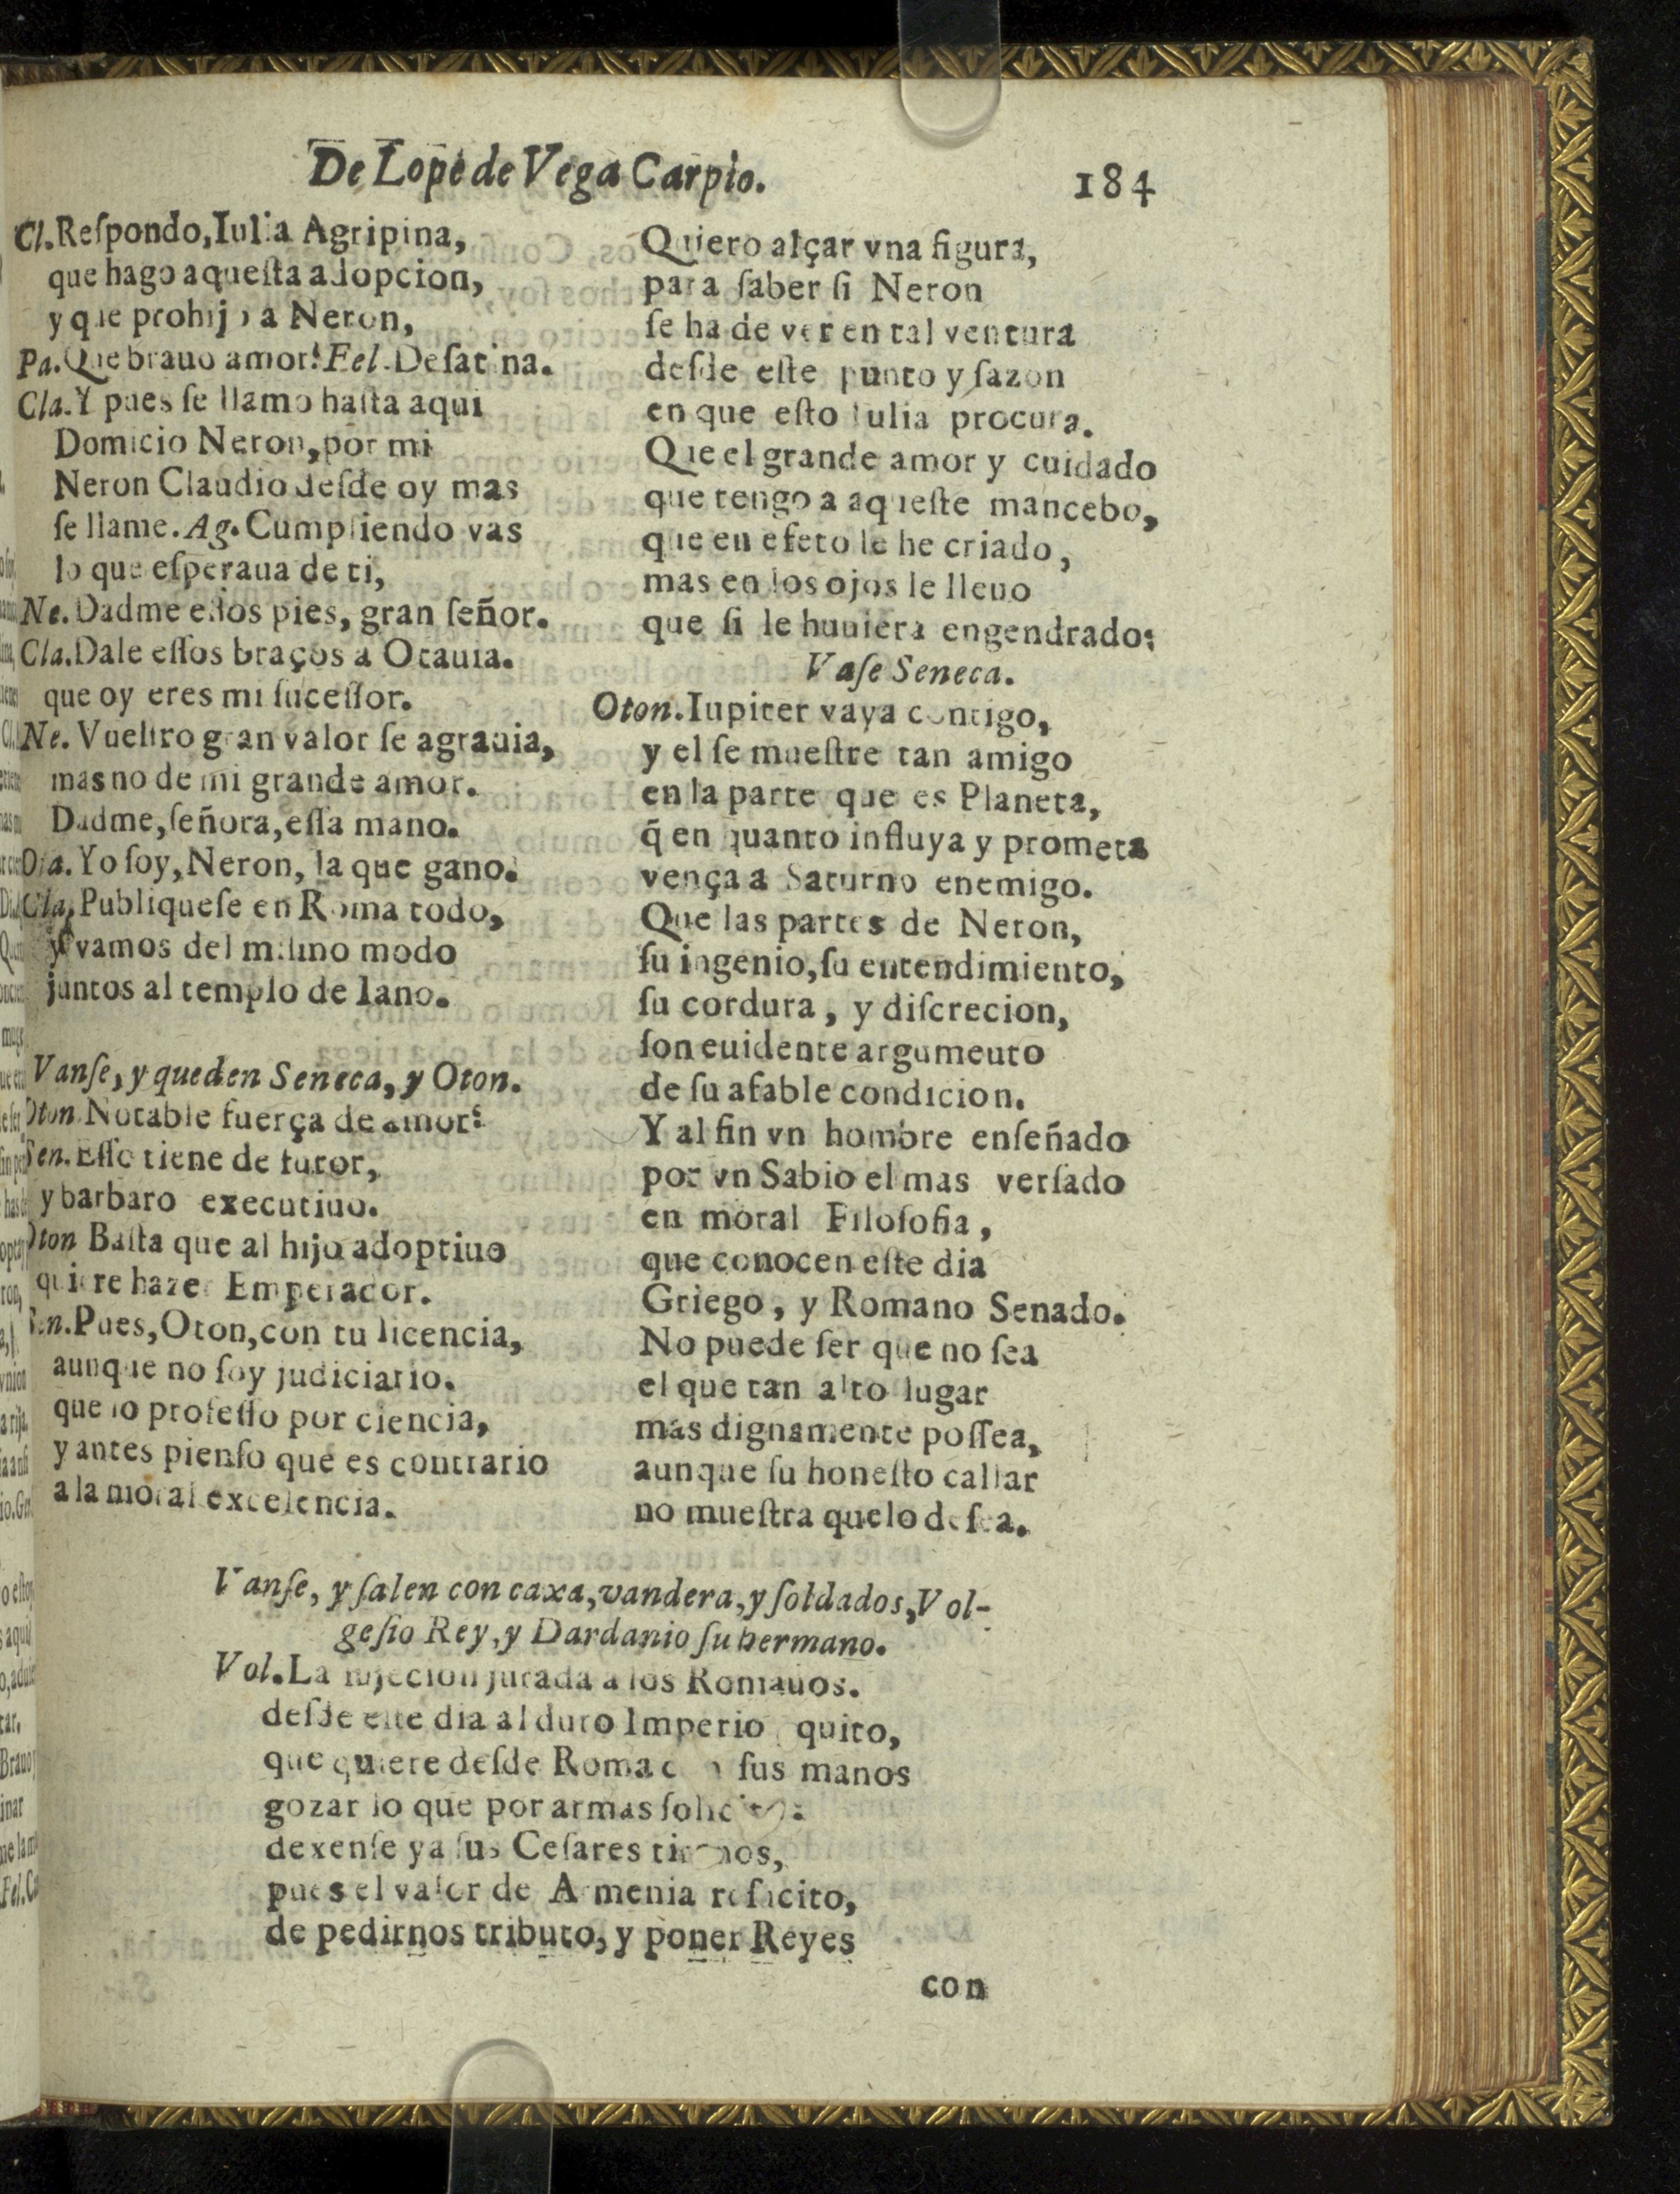 De Lope de Vega Carpio.
184
Cl. Reſpondo, Iulia Agripina,
que hago aqueſta adopcion,
y que prohijo a Neron,
Pa. Que brauo amor! Fel. Deſatina.
Cla. Y pues ſe llamo haſta aqui
Domicio Neron, por mi
Neron Claudio deſde oy mas
ſe llame. Ag. Cumpliendo vas
lo que eſperaua de ti,
Ne. Dadme eſſos pies, gran ſeñor.
Cla. Dale eſſos braços a Otauia.
que oy eres mi ſuceſſor.
Ne. Vueſtro gran valor ſe agrauia,
mas no de mi grande amor.
Dadme, ſeñora, eſſa mano.
Ota. Yo ſoy, Neron, la que gano.
Cla, Publiqueſe en Roma todo,
y vamos del miſmo modo
juntos al templo de Iano.
Vanſe, y queden Seneca, y Oton.
Oton. Notable fuerça de amor!
Sen. Eſſo tiene de furor,
y barbaro executiuo.
Oton Baſta que al hijo adoptiuo
quiere hazer Emperador.
Sen. Pues, Oton, con tu licencia,
aunque no ſoy judiciario.
que lo profeſſo por ciencia,
y antes pienſo que es contrario
a la moral excelencia.
Quiero alçar vna figura,
para ſaber ſi Neron
ſe ha de ver en tal ventura
deſde eſte punto y ſazon
en que eſto Iulia procura.
Que el grande amor y cuidado
que tengo a aqueſte mancebo,
que en efeto le he criado,
mas en los ojos le lleuo
que ſi le huuiera engendrado:
Vaſe Seneca.
Oton. Iupiter vaya contigo,
y el ſe mueſtre tan amigo
en la parte que es Planeta,
q̃ en quanto influya y prometa
vença a Saturno enemigo.
Que las partes de Neron,
ſu ingenio, ſu entendimiento,
ſu cordura, y diſcrecion,
ſon euidente argumeuto
de ſu afable condicion.
Y al fin vn hombre enſeñado
por vn Sabio el mas verſado
en moral Filoſofia,
que conocen eſte dia
Griego, y Romano Senado.
No puede ſer que no ſea
el que tan alto lugar
mas dignamente poſſea,
aunque ſu honeſto callar
no mueſtra que lo deſea.
Vanſe, y ſalen con caxa, vandera, y ſoldados, Vol-
geſio Rey, y Dardanio ſu hermano.
Vol. La ſujecion jurada a los Romauos.
deſde eſte dia al duro Imperio quito,
que quiere deſde Roma con ſus manos
gozar lo que por armas ſolicito:
dexenſe ya ſus Ceſares tiranos,
pues el valor de Armenia reſucito,
de pedirnos tributo, y poner Reyes
con